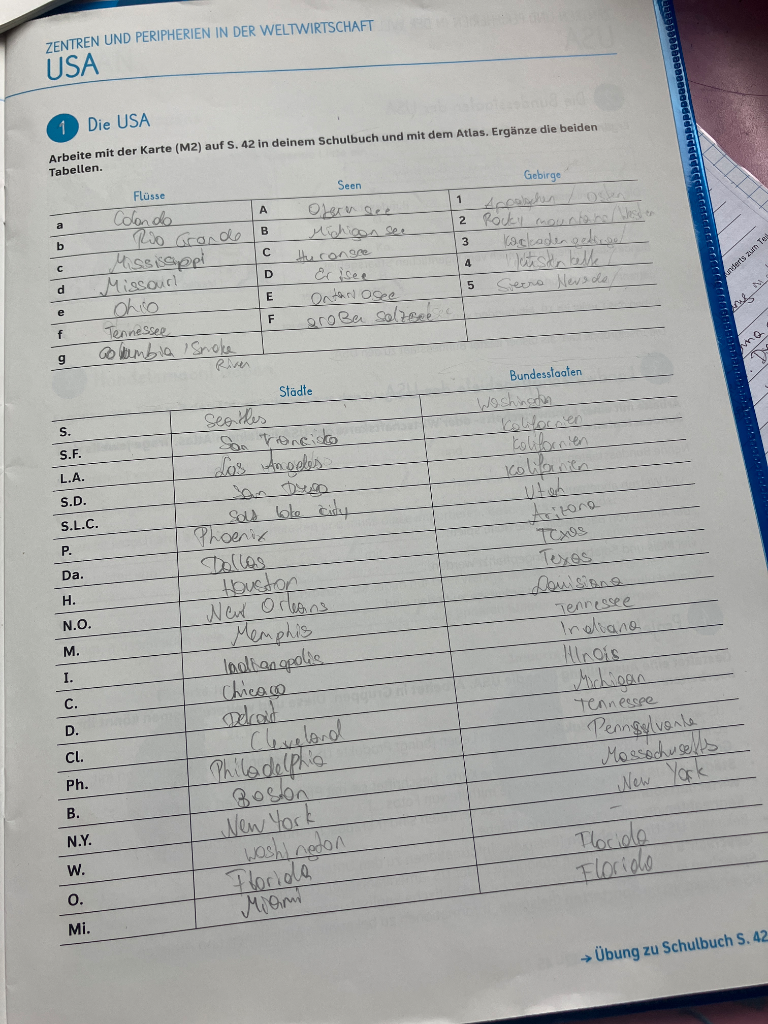 ZENTREN UND PERIPHERIEN IN DER WELTWIRTSCHAFT
USA
1 Die USA
Arbeite mit der Karte (M2) auf S. 42 in deinem Schulbuch und mit dem Atlas. Ergänze die beiden
Tabellen.
Flüsse Seen Gebirge
a Colorado A Oberer see 1 Appalachen / Osten
b Rio Grande B Michigan see 2 Rocky mountains / Westen
c Mississippi C Huronsee 3 Kaskadengebirge/
d Missouri D Eriesee 4 Küstenkette /
e Ohio E Ontariosee 5 Sierra Nevada/
f Tennessee F großer Salzsee
g Columbia / Snake
River
Städte Bundesstaaten
S. Seattles Washington
S.F. San Francisko Kalifornien
L.A. Los Angeles Kalifornien
S.D. San Diego Kalifornien
S.L.C. Salt lake city Utah
P. Phoenix Arizona
Da. Dallas Texas
H. Houston Texas
N.O. New Orleans Louisiana
M. Memphis Tennessee
I. Indianapolis Indiana
C. Chicago Illnois
D. Detroit Michigan
Cl. Cleveland Tennessee
Ph. Philadelphia Pennsylvania
B. Boston Massachusetts
N.Y. New York New York
W. Washington –
O. Florida Florida
Mi. Miami Florida
→ Übung zu Schulbuch S. 42